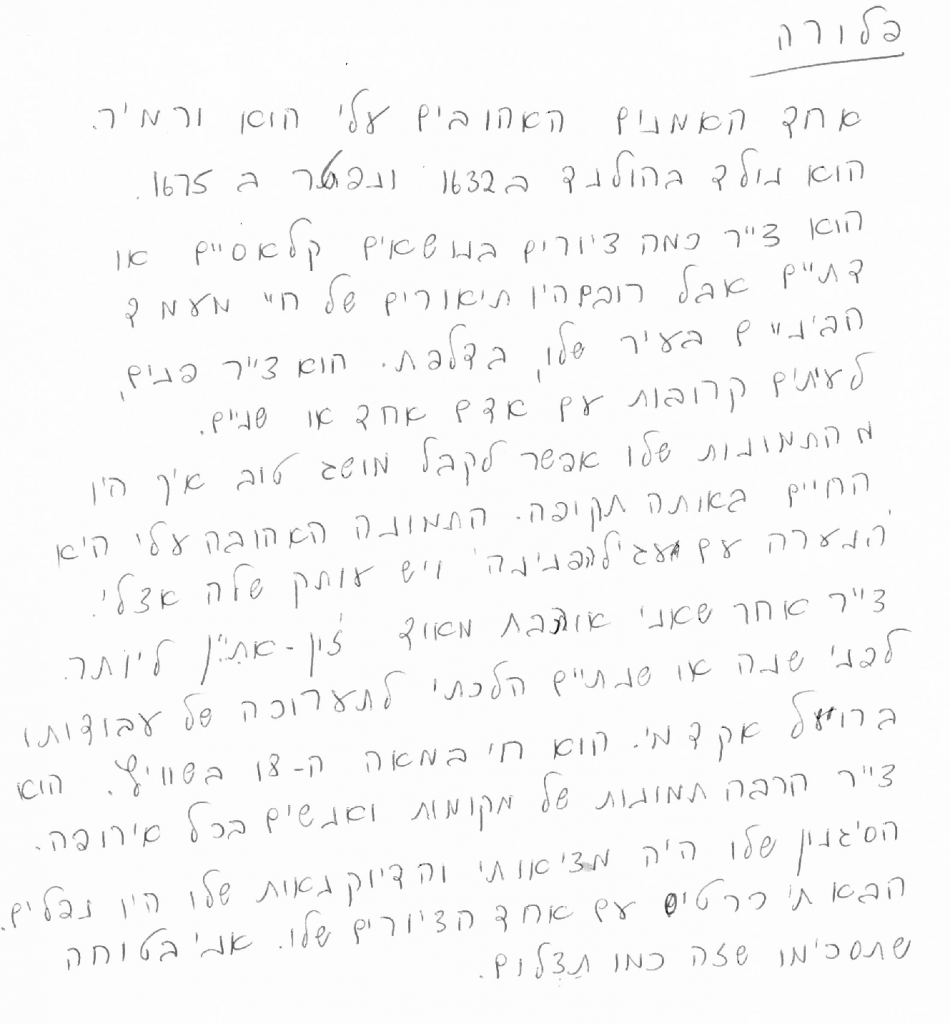 פלורה
אחד האמנים האהובים עלי הוא ורמיר.
הוא נולד בהולנד ב 1632 ונפטר ב 1675.
הוא צייר כמה ציורים בנושאים קלאסיים או
דתיים אבל רובם היו תיאורים של חיי מעמד
הביניים בעיר שלו, בדלפת. הוא צייר פנים,
לעיתים קרובות עם אדם אחד או שניים.
מ התמונות שלו אפשר לקבל מושג טוב איך היו
החיים באותה תקופה. התמונה האהובה עלי היא
'הנערה עם עגיל הפנינה' ויש עותק שלה אצלי.
צייר אחר שאני אוהבת מאוד ז'ון-אתיין ליותר.
לפני שנה או שנתיים הלכתי לתערוכה של עבודותו
ברויאל אקדמי. הוא חי במאה ה-18 בשוויץ. הוא
צייר הרבה תמונות של מקומות ואנשים בכל אירופה.
הסיגנון שלו היה מציאותי והדיוקנאות שלו היו נפלים.
הבאתי כרטיס עם אחד הציורים שלו. אני בטוחה
שתסכימו שזה כמו תצלום.